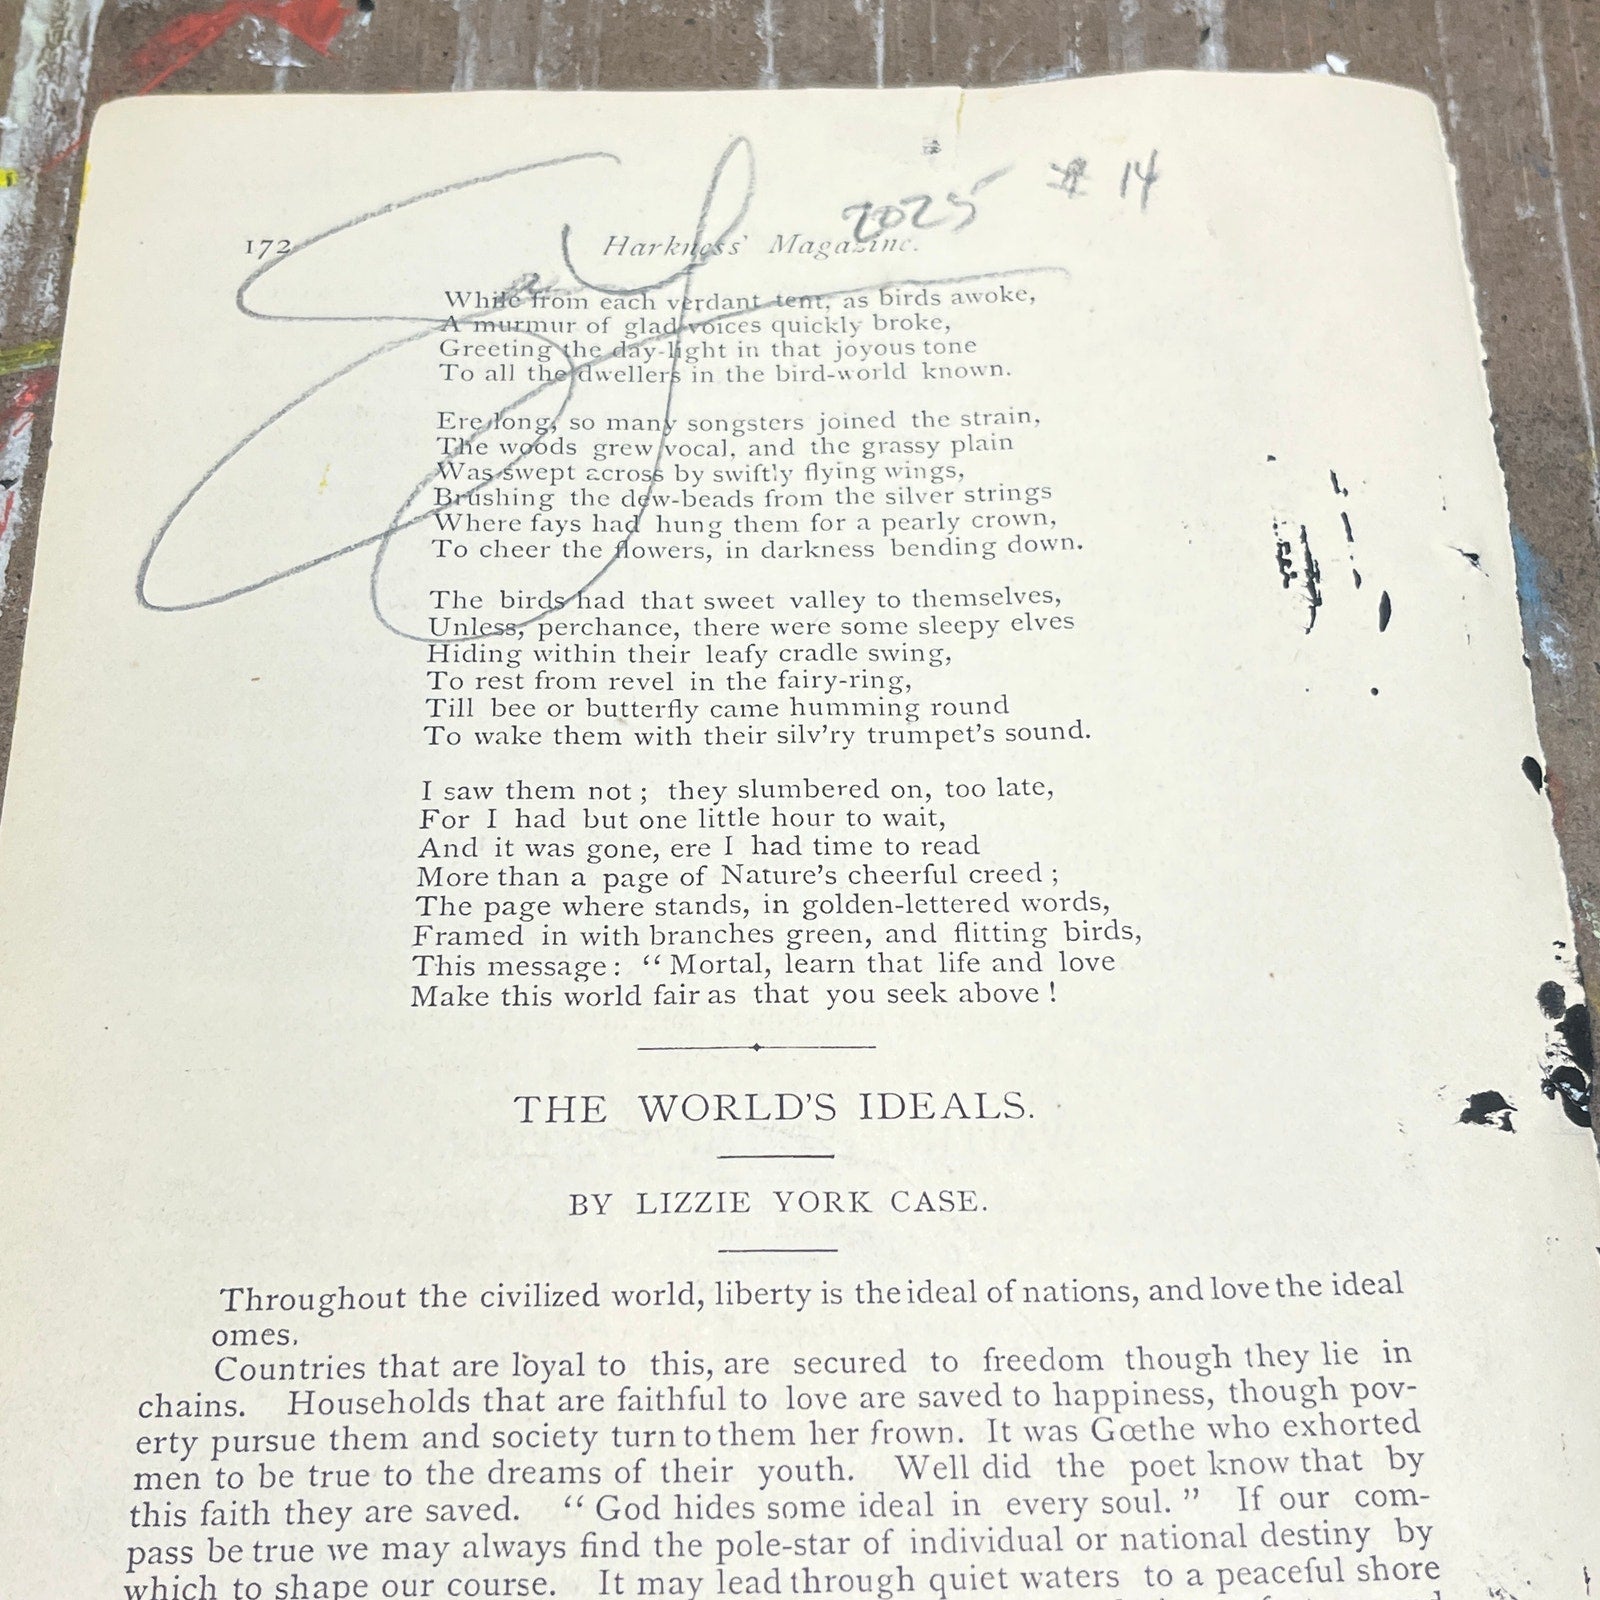 2025 # 14
172 Harkness' Magazine.
While from each verdant tent, as birds awoke,
A murmur of glad voices quickly broke,
Greeting the day-light in that joyous tone
To all the dwellers in the bird-world known.
Ere long, so many songsters joined the strain,
The woods grew vocal, and the grassy plain
Was swept across by swiftly flying wings,
Brushing the dew-beads from the silver strings
Where fays had hung them for a pearly crown,
To cheer the flowers, in darkness bending down.
The birds had that sweet valley to themselves,
Unless, perchance, there were some sleepy elves
Hiding within their leafy cradle swing,
To rest from revel in the fairy-ring,
Till bee or butterfly came humming round
To wake them with their silv'ry trumpet's sound.
I saw them not; they slumbered on, too late,
For I had but one little hour to wait,
And it was gone, ere I had time to read
More than a page of Nature's cheerful creed;
The page where stands, in golden-lettered words,
Framed in with branches green, and flitting birds,
This message: "Mortal, learn that life and love
Make this world fair as that you seek above!
THE WORLD'S IDEALS.
BY LIZZIE YORK CASE.
Throughout the civilized world, liberty is the ideal of nations, and love the ideal
omes.
Countries that are loyal to this, are secured to freedom though they lie in
chains. Households that are faithful to love are saved to happiness, though pov-
erty pursue them and society turn to them her frown. It was Gœthe who exhorted
men to be true to the dreams of their youth. Well did the poet know that by
this faith they are saved. "God hides some ideal in every soul." If our com-
pass be true we may always find the pole-star of individual or national destiny by
which to shape our course. It may lead through quiet waters to a peaceful shore